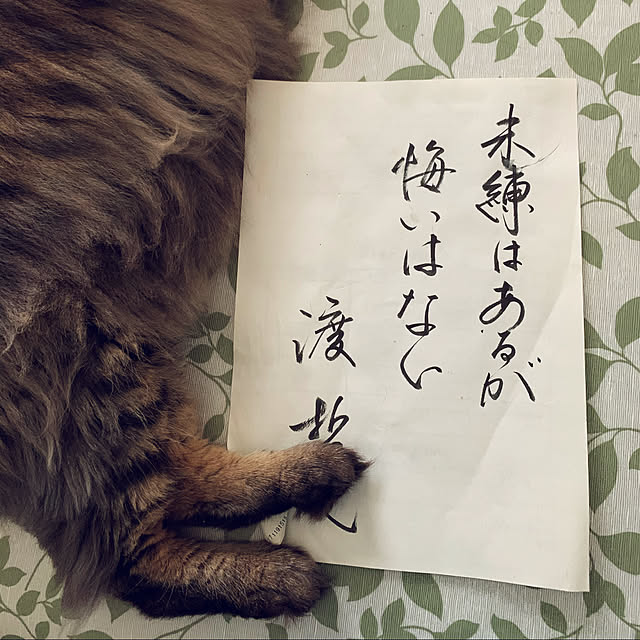 未練はあるが
悔いはない
渡哲